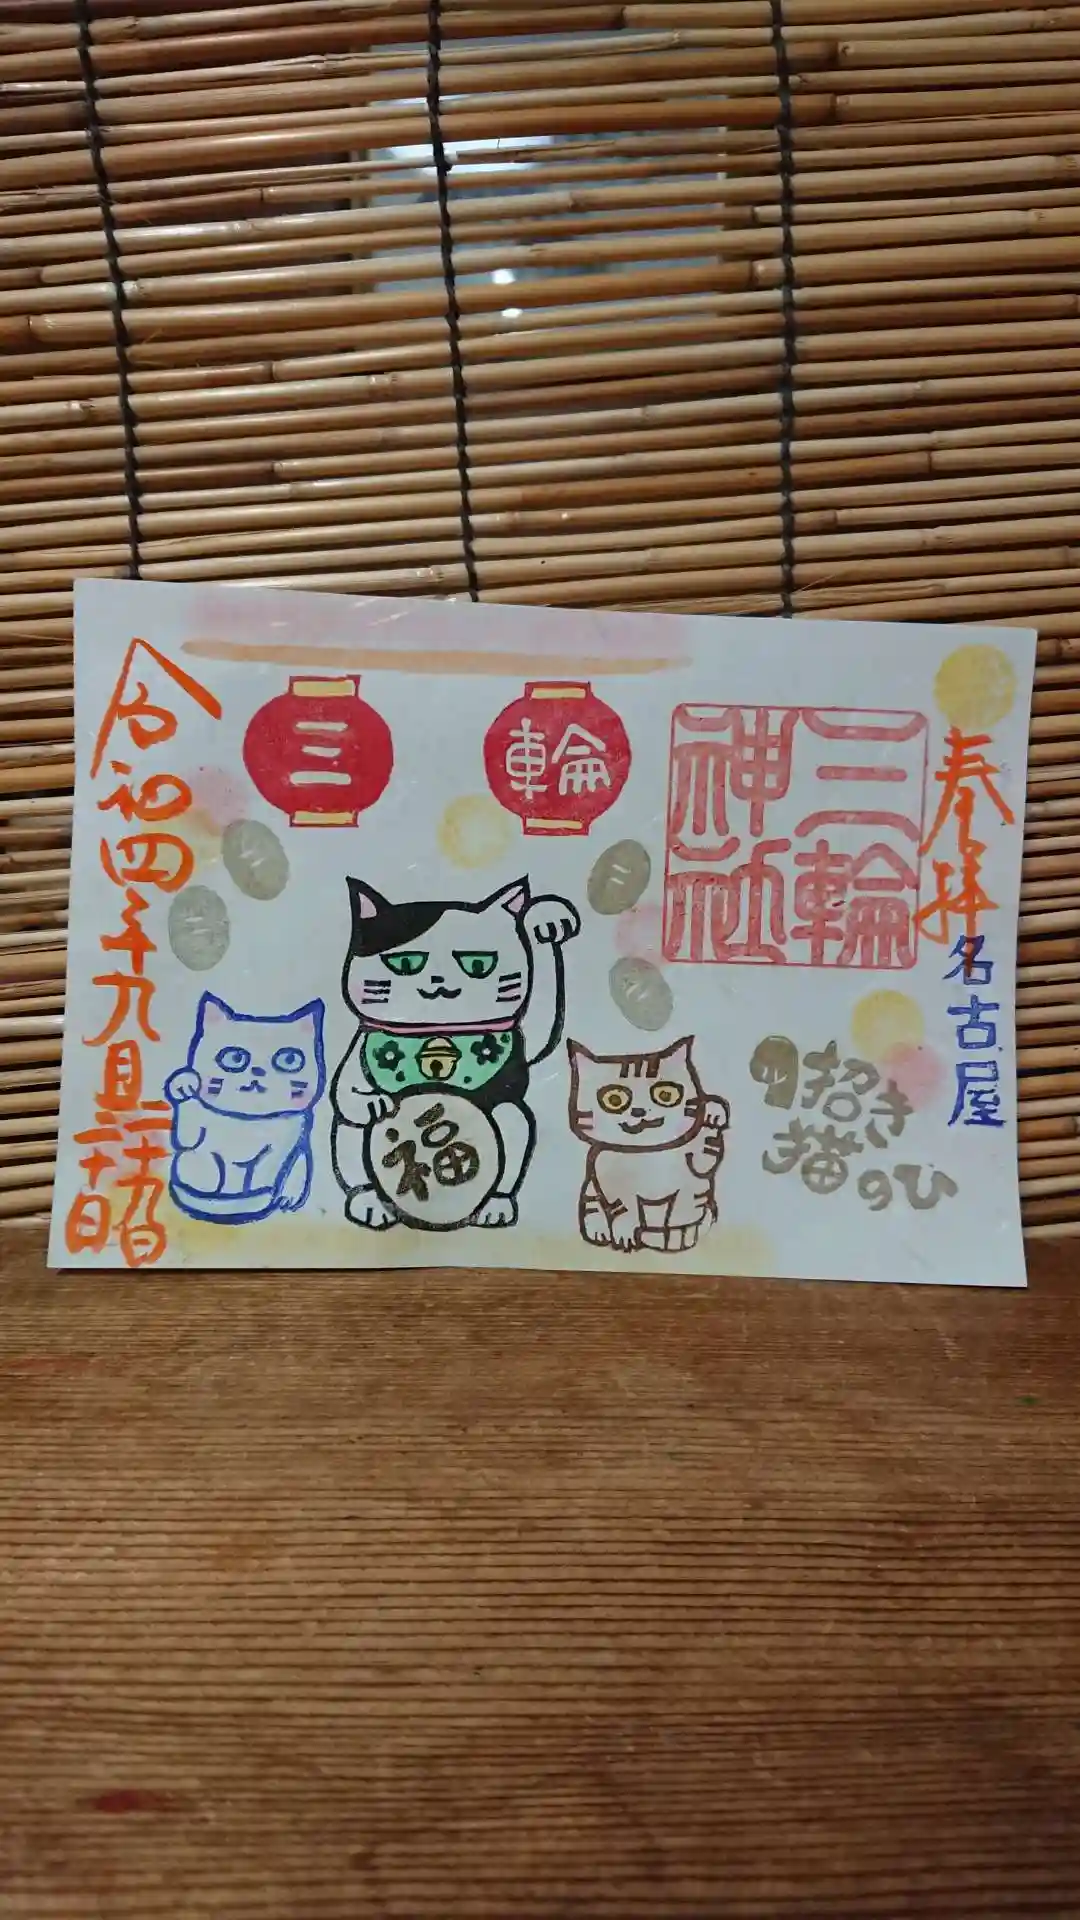 奉拝
名古屋
三輪
神社
招き
猫のひ
三
輪
福
令和四年九月二十九日